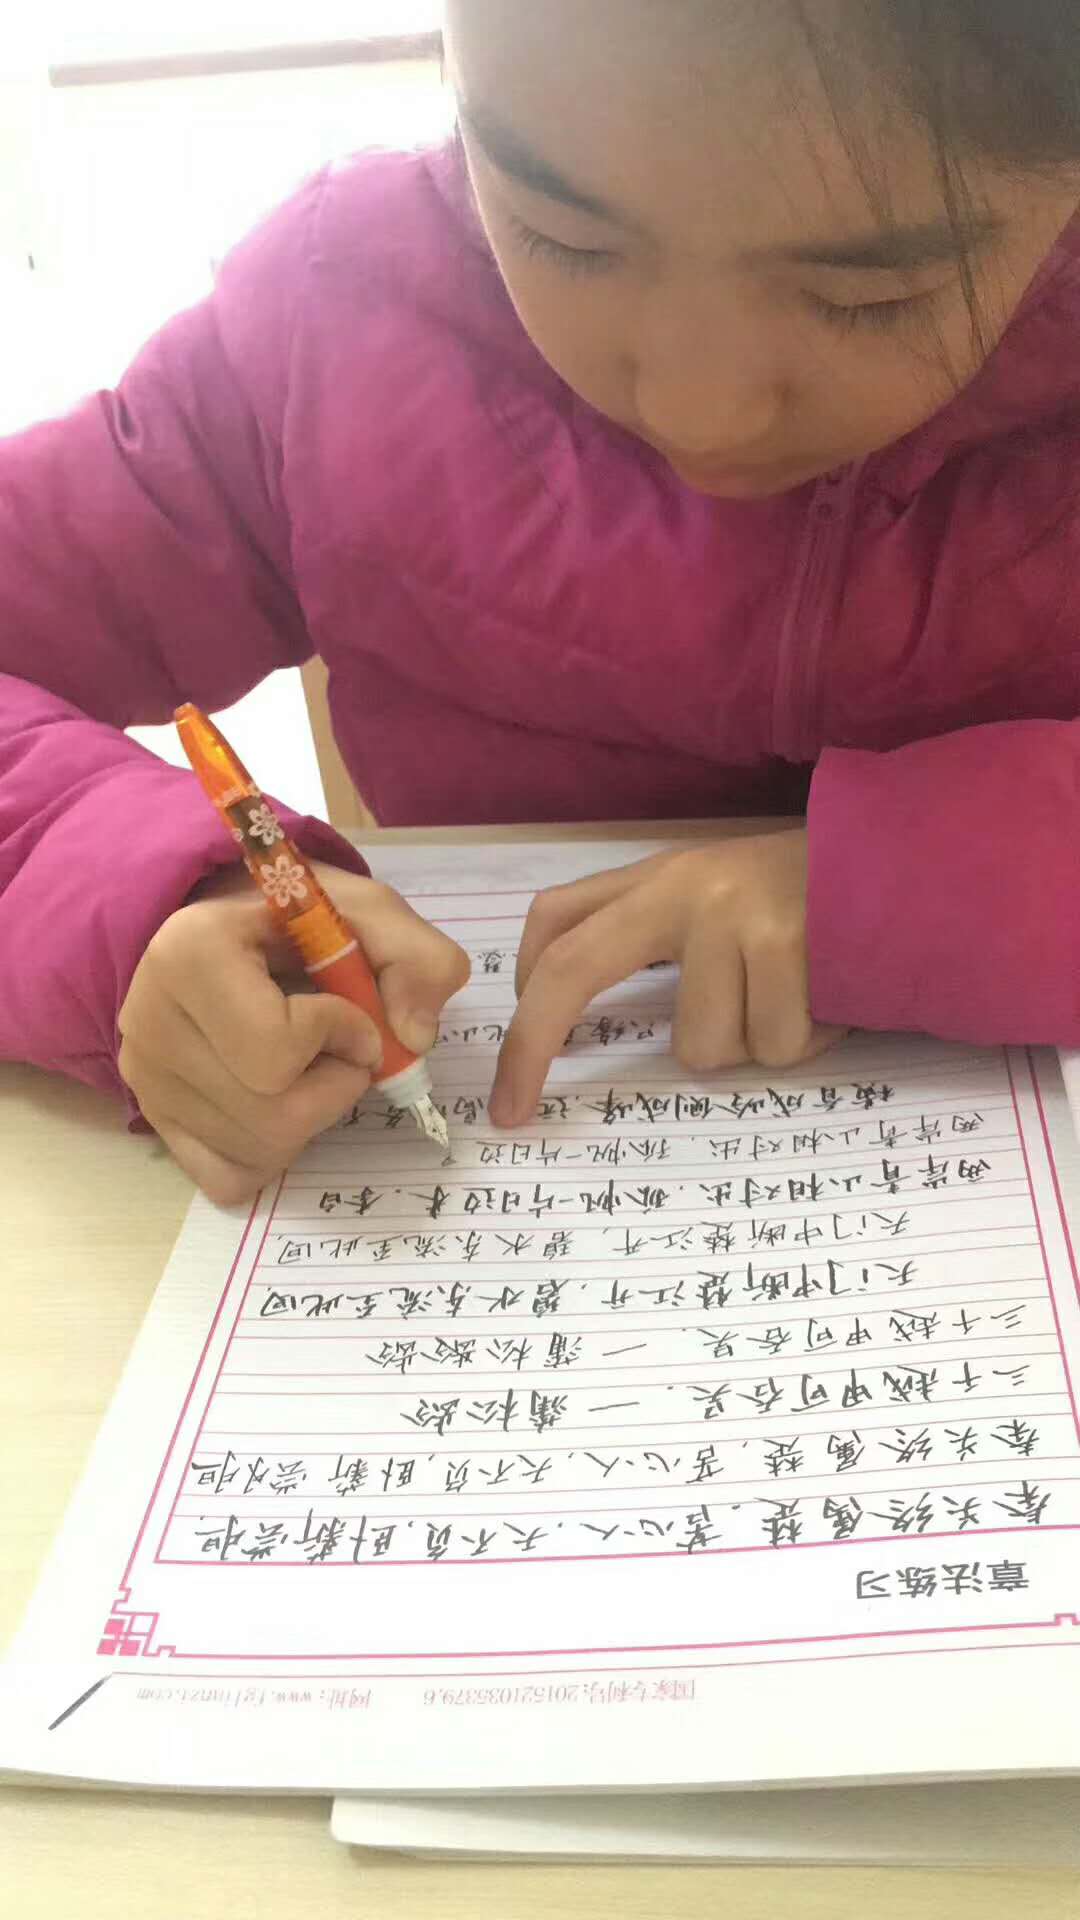 国家专利号:201521035379.6 网址:www.fglianzi.com
章法练习
秦关终属楚.苦心人.天不负,卧薪尝胆.
秦关终属楚,苦心人,天不负,卧薪尝胆
三千越甲可吞吴.一蒲松龄
三千越甲可吞吴.一蒲松龄龄
天门中断楚江开.碧水东流至此回.
天门中断楚江开,碧水东流至此回.
两岸青山相对出.孤帆一片日边来.李白
两岸青山相对出.孤帆一片日边
横看成岭侧成峰.远 高 各不
只缘 此山